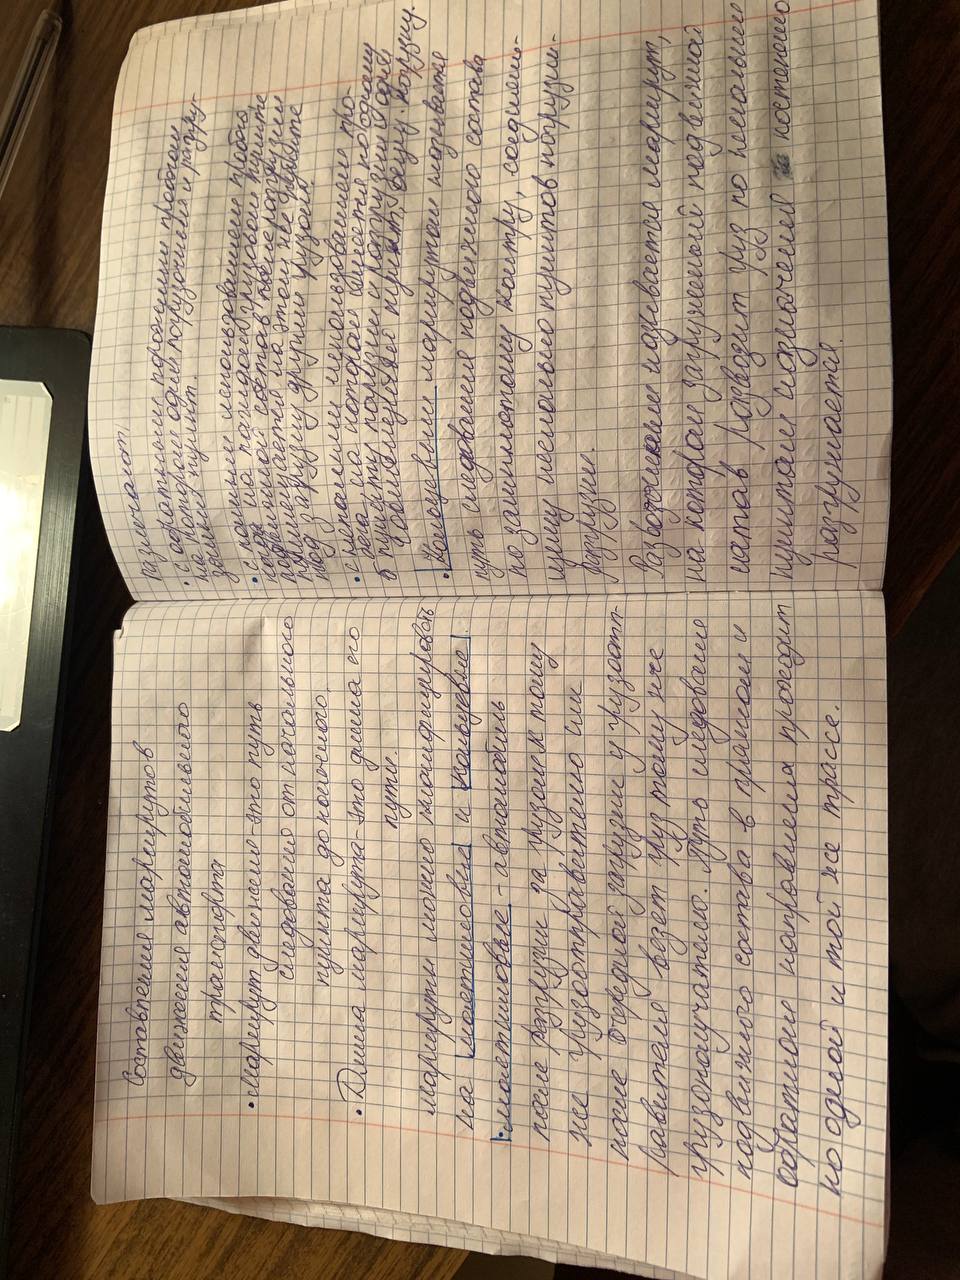 Составление маршрутов
движения автомобильного
транспорта
• Маршрут движения - это путь
следования от начального
пункта до конечного.
• Длина маршрута - это длина его
пути.
Маршруты можно классифицировать
на маятниковые и кольцевые.
• маятниковые - автомобиль
после разгрузки за грузом к тому
же грузоотправителю или
после очередной загрузке у грузоотп-
равителя везет груз тому же
грузополучателю. Путь следования
подвижного состава в прямом и
обратном направлении проходит
по одной и той же трассе.
Различают:
• с обратным порожним пробегом
на котором один погрузочный и разгру-
зочный пункт.
• с полным использованием пробега
но на каждом грузовом пункте
подвижной состав после разгрузки
подается на этом же пункте
под загрузку другим грузом.
• с неполным использованием про-
бега на котором имеется по одному
пункту погрузки и разгрузки и один
пункт, погрузку.
• Кольцевым маршрутом называется
путь следования подвижного состава
по замкнутому контуру, соединя-
ющему несколько пунктов погрузки-
разгрузки.
Развозочным называется маршрут,
на котором загруженный подвижной
состав развозит груз по нескольким
пунктам назначения и постепенно
разгружается.